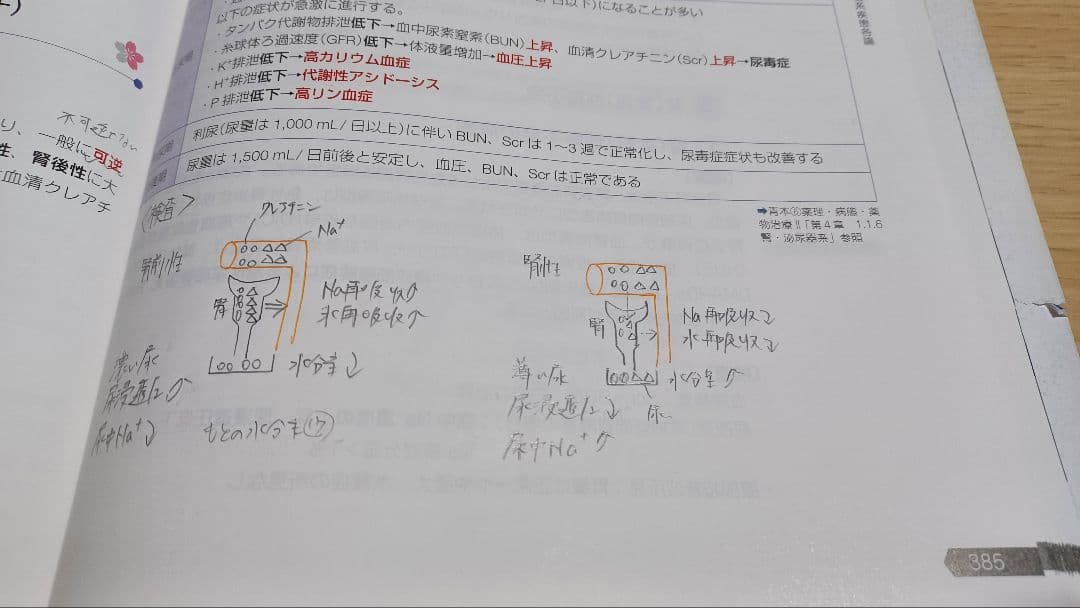 日以下)になることが多い
以下の症状が急激に進行する。
・タンパク代謝物排泄低下→血中尿素窒素(BUN)上昇、血清クレアチニン(Scr)上昇→尿毒症
・糸球体ろ過速度(GFR)低下→体液量増加→血圧上昇
・K⁺排泄低下→高カリウム血症
・H⁺排泄低下→代謝性アシドーシス
・P 排泄低下→高リン血症
利尿(尿量は 1,000 mL/ 日以上)に伴い BUN、Scr は 1〜3 週で正常化し、尿毒症症状も改善する
尿量は 1,500 mL/ 日前後と安定し、血圧、BUN、Scr は正常である
系疾患各論
り、一般に可逆
性、腎後性に大
血清クレアチ
➡青本⑥薬理・病態・薬
物治療Ⅱ「第4章 1.1.6
腎・泌尿器系」参照
<検査>
クレアチニン
Na⁺
腎前性
腎
Na再吸収↑
水再吸収↑
濃い尿
尿浸透圧↑
尿中Na⁺↓
水分量↓
もとの水分量
腎性
腎
Na再吸収↓
水再吸収↓
薄い尿
尿浸透圧↓
尿中Na⁺↑
水分量↑
尿
385